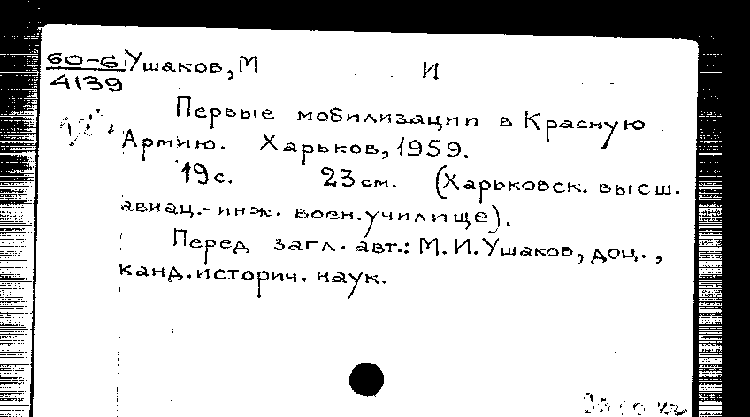 60-6 Ушаков, М И
4139
Первые мобилизации в Красную
Армию. Харьков, 1959.
19с. 23 см. (Харьковск. высш.
авиац.-инж. воен. училище).
Перед загл. авт.: М. И. Ушаков, доц.,
канд. историч. наук.